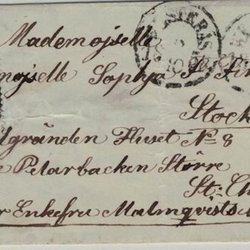 Mademojselle
mojselle Sophja
Stock
gränden Huset No 8
Petarbacken Större
St: Cl
Enkefru Malmqvists